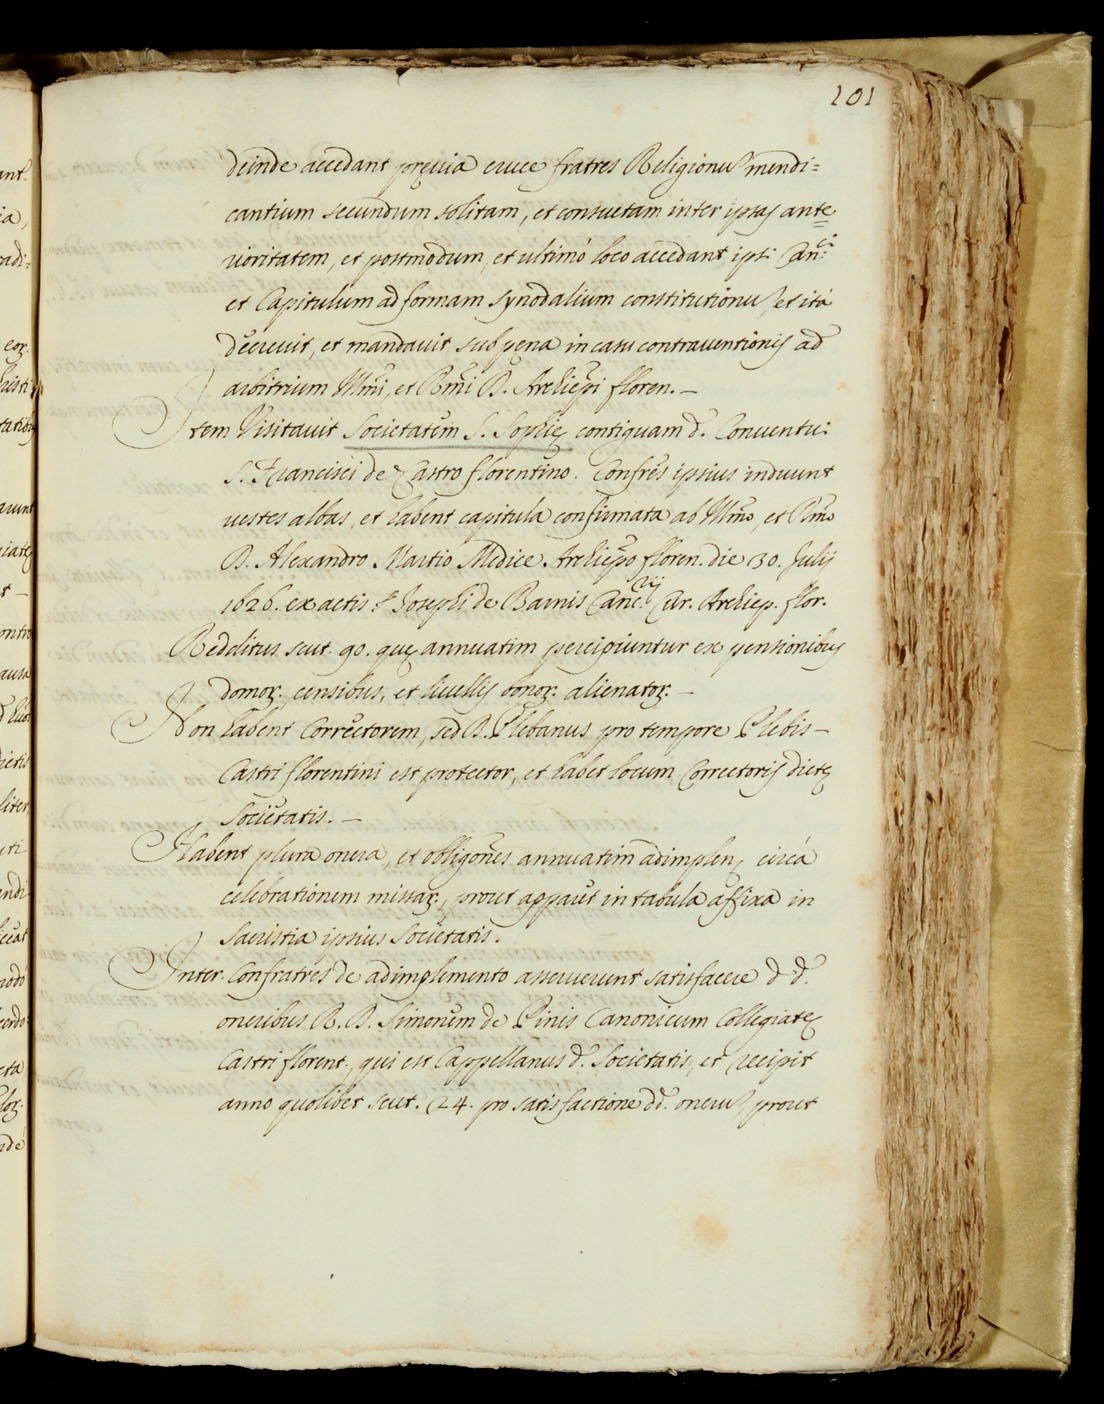 101
deinde accedant pręuia cruce fratres Religionũ mendi=
cantium secundum solitam, et consuetam inter ipsas ante=
rioritatem, et postmodum, et ultimó loco accedant ipsi Can:ci
et Capitulum ad formam synodalium constitutionũ, et itá
decreuit, et mandauit sub pęna in casu contrauentionis ad
arbitrium Illm̃i, et Rm̃i D. Archiep̃i floren. –
Item Visitauit Societatem S. Sophię contiguam d.º Conuentui
S. Francisci de Castro florentino. Confres ipsius induunt
uestes albas, et habent capitula confirmata ab Illm̃o, et Rm̃o
D. Alexandro Martio Medice Archiep̃o floren. die 30. Julij
1626. ex actis Josephi de Barnis Canc.rij Cur. Archiep. flor.
Redditus scut. 90. quę annuatim percipiuntur ex pensionibus
domoꝝ: censibus, et liuellis bonoꝝ: alienatoꝝ: –
Non habent Correctorem, sed D. Plebanus pro tempore Plebis –
Castri florentini est protector, et habet locum Correctoris dictę
Societatis. –
Habent plura onera, et obligões annuatim adimplen. circá
celebrationem missaꝝ:, prout apparet in tabula affixa in
Sacristia ipsius Societatis.
Inter Confratres de adimplemento asseruerunt satisfacere d. d.
oneribus R. D. Simonem de Pinis Canonicum Collegiatę
Castri florent., qui est Cappellanus d.ę Societatis, et recipit
anno quolibet scut. 24. pro satisfactione dd. onerũ, prout